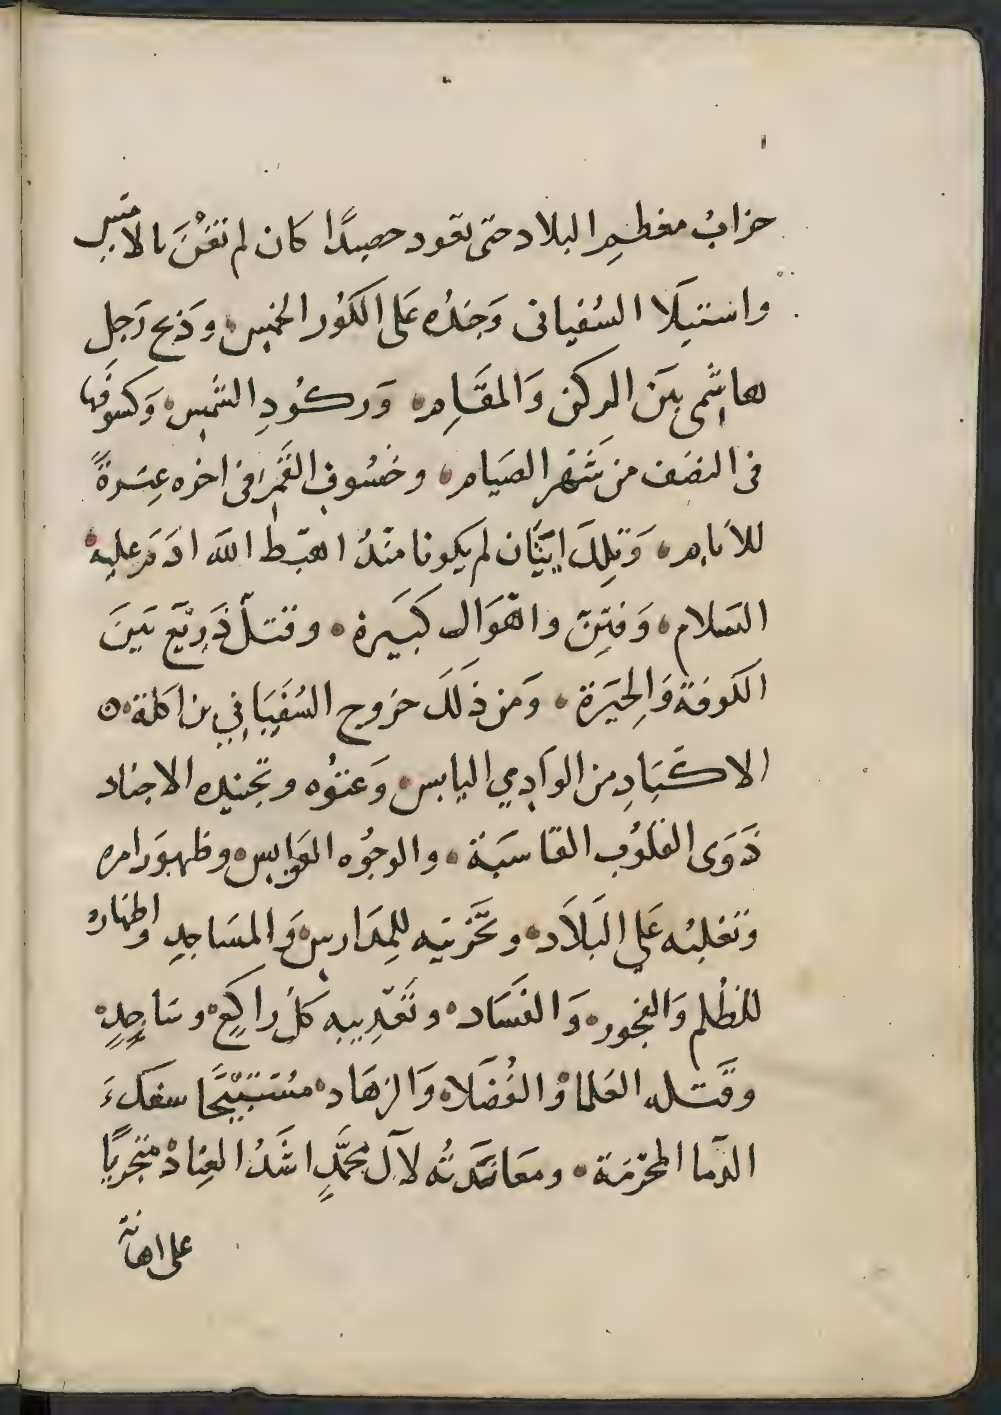 خرابُ معظمِ البلاد حتى تعود حصيدًا كان لم تَغْنَ بالامس
واستيلا السُفيانى وَجندُه عَلى الكوُر الخمس وذبح رَجل
هاشمى بين الركن وَالمقَامِ وَركُودِ الشمس وَكسوفها
فى النصف من شَهْر الصيام وخسُوفِ القَمر فى اخره عِبْرةً
للأنام وَتِلكَ ايتَان لم يكونا منذُ اهبَط الله ادَمَ عليه
السلام وَفِتَنٍ واهْوَال كَبَيرة وقتلٍ ذَرِيْعٍ بَينَ
الكوفة وَالحِيَرة وَمن ذلَكَ خروج السُفيَاني بن اكلة
الاكبَادِ من الوَادِي اليابس وَعتوُه وتجنيده الاجناد
ذَوَى القلوُب القاسيَة والوجوُه العَوابس وظهوَر امره
وَتغلبُه عَلي البَلاَد وتخَريبه للمِدَارس وَالمسَاجدِ واظهَارهُ
للظُلم وَالفجور وَالفسَاد وتَعذيبه كلَ راكعٍ وسَاجدٍ
وقَتله العُلماَ وُالفُضَلاء وَالزهَاد مُسْتبَيْحًا سفكَ
الدّما المُحرْمَة ومعَاندَتُه لآل محمَّدٍ اشَدُ العِنادْ متجريًا
على اهانة